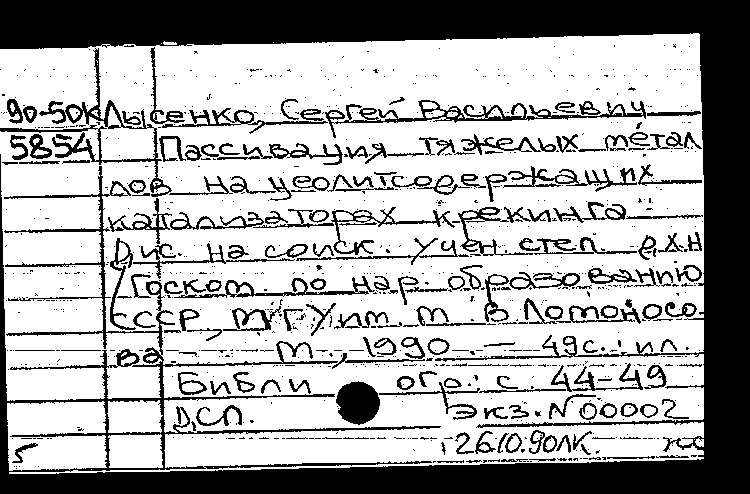 90-50К Лысенко, Сергей Васильевич
5854 Пассивация тяжелых метал
лов на цеолитсодержащих
катализаторах крекинга
Дис. на соиск. учен. степ. д.х.н
/Госком. по нар. образованию
СССР, МГУ им. М. В. Ломоносо-
ва - М., 1990. - 49с.: ил.
Библи огр.: с. 44-49
ДСП. Экз. N 00002
5 26.10.90ЛК.